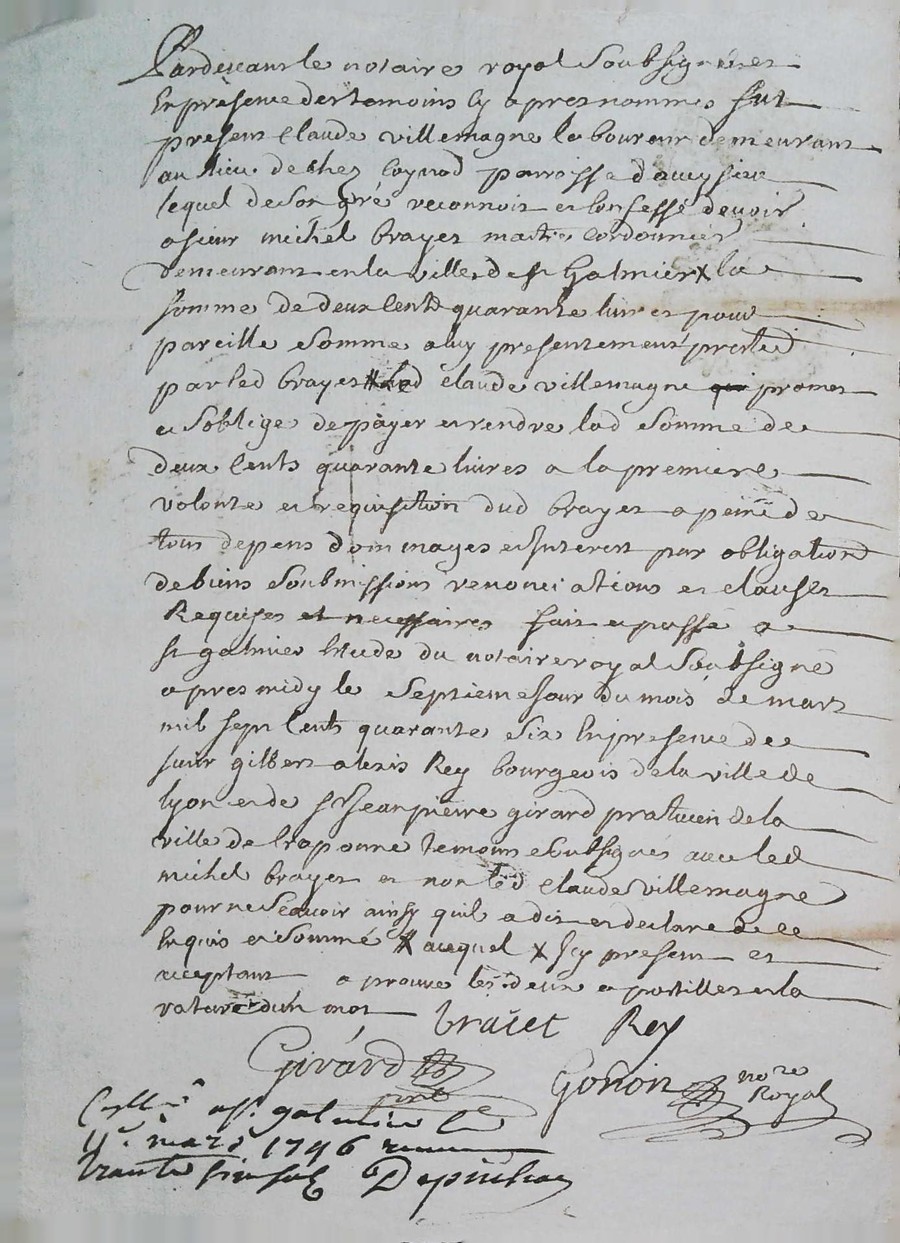 Pardevant le notaire royal Soubsigné et
En presence des temoins cy apres nommes fut
present Claude villemagne laboureur demeurant
au lieu de chez Coynod parroisse daveysieu
lequel de son gré reconnois et confesse devoir
a sieur michel brayet maitre cordonnier
demeurant en la ville de st Galmier x la
somme de deux cents quarante livres pour
pareille somme a luy presentement presté
par led brayet # led claude villemagne promet
et soblige de payer et rendre lad somme de
deux cents quarante livres a la premiere
volonte et requisition dud brayet a peine de
tous depens dommages et Interest par obligation
de biens soubmissions renonciations et clauses
Requises et necessaires fait et passé a
st galmier Etude du notaire royal soubsigné
apres midy le septieme jour du mois de mars
mil sept cents quarante six En presence de
sieur gilbert alexis Rey bourgeois de la ville de
lyon et de sr Jean pierre girard praticien de la
ville de Craponne temoins soubsignés avec led
michel brayet et non led Claude villemagne
pour ne scavoir ainsy quil a dit et declare de ce
Enquis et sommé # auquel x Icy present et
acceptant aprouve les deux apostilles et la
rature dun mot braiet Rey
Girard
Gonon no re
Royal
Coll a st galmier le
11e mars 1746
trante six sols